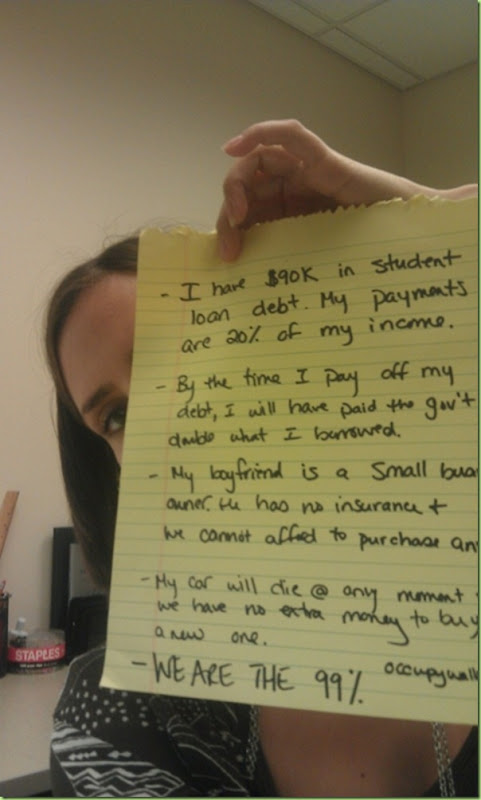 - I have $90K in student
loan debt. My payments
are 20% of my income.
- By the time I pay off my
debt, I will have paid the gov't
double what I borrowed.
- My boyfriend is a small
owner. He has no insurance +
we cannot afford to purchase
- My car will die @ any moment
we have no extra money to buy
a new one.
- WE ARE THE 99%
STAPLES